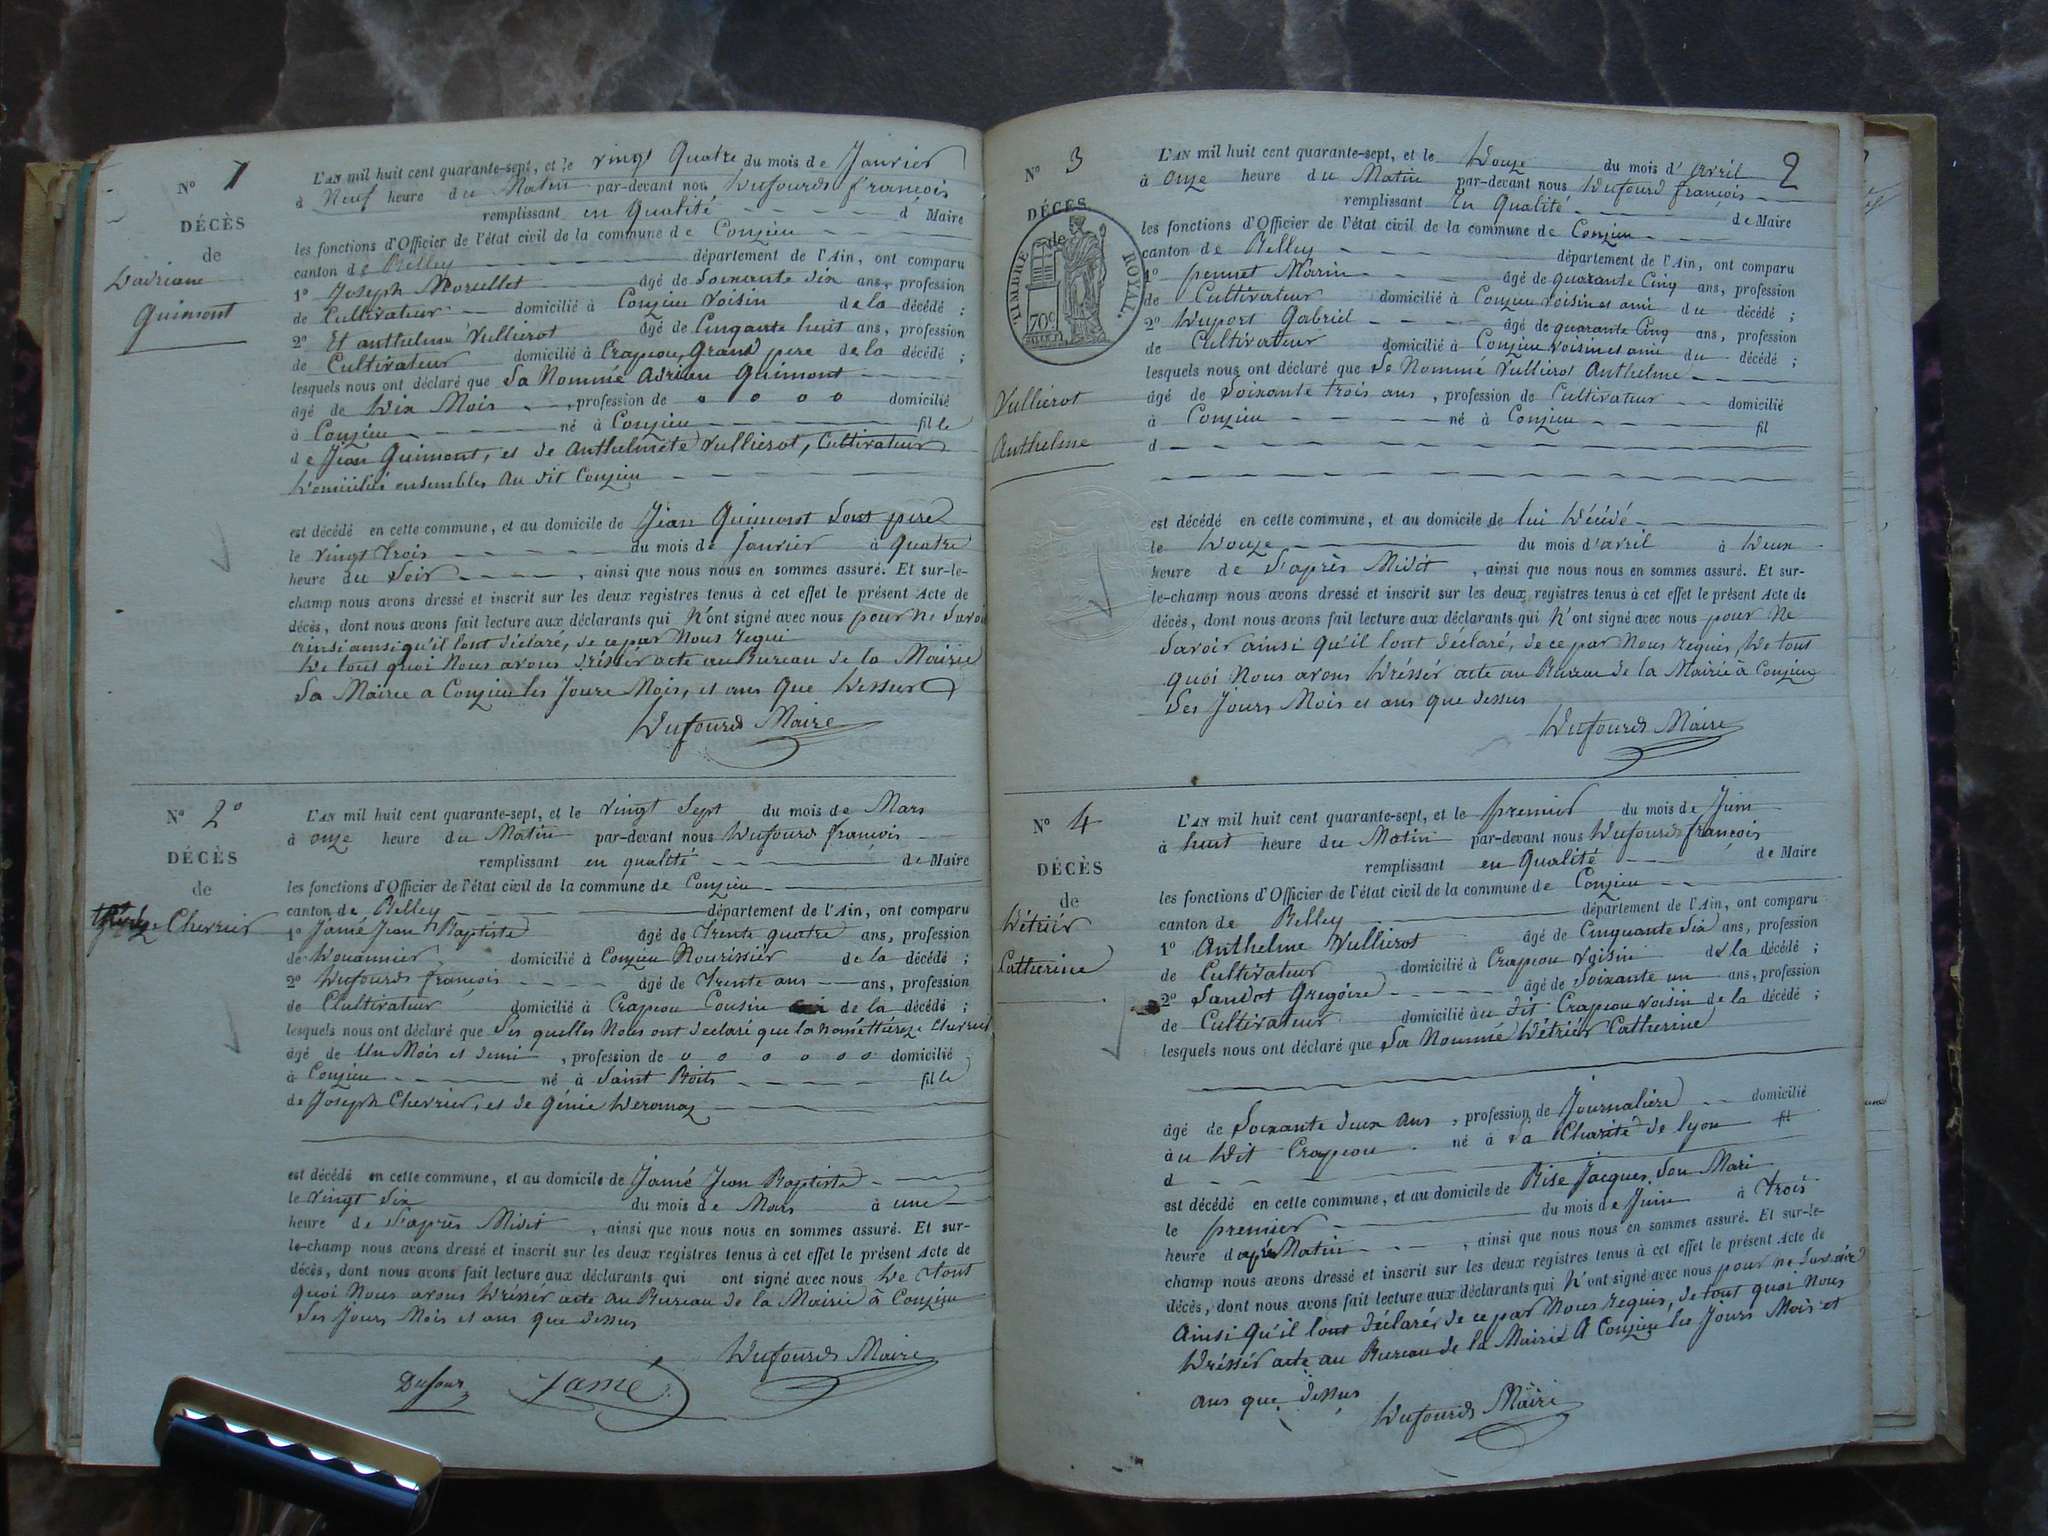 N° 1
DÉCÈS
de
Dadriane
Guimont
L'AN mil huit cent quarante-sept, et le vingt Quatre du mois de Janvier
à Neuf heure du Matin par-devant nous Dufourd françois
remplissant en Qualité d Maire
les fonctions d'Officier de l'état civil de la commune de Conzieu
canton de Belley département de l'Ain, ont comparu
1° Joseph Morsellet âgé de Soixante Six ans, profession
de Cultivateur domicilié à Conzieu Voisin de la décédé ;
2° Et anthelme Vullierot âgé de Cinquante huit ans, profession
de Cultivateur domicilié à Crapeou, Grand pere de la décédé ;
lesquels nous ont déclaré que Sa Nommé Adrien Guimont
âgé de Dix Mois , profession de o o o o domicilié
à Conzieu né à Conzieu fille
de Jean Guimont, et de Anthelmete Vullierot, Cultivateur
Domiciliés ensembles au dit Conzieu
est décédé en cette commune, et au domicile de Jean Guimont Sont pere
le vingt trois du mois de Janvier à Quatre
heure du Soir , ainsi que nous nous en sommes assuré. Et sur-le-
champ nous avons dressé et inscrit sur les deux registres tenus à cet effet le présent Acte de
décès, dont nous avons fait lecture aux déclarants qui N'ont signé avec nous pour ne Savoir
ainsi qu'il lont déclaré, de ce par Nous requi
De tous quoi Nous avons drésser acte au Bureau de la Mairie
Sa Mairie a Conzieu les Joure Mois, et ans Que Dessus
Dufourd Maire
N° 2°
DÉCÈS
de
Chevrier
L'AN mil huit cent quarante-sept, et le vingt Sept du mois de Mars
à onze heure du Matin par-devant nous Dufourd françois
remplissant en qualité de Maire
les fonctions d'Officier de l'état civil de la commune de Conzieu
canton de Belley département de l'Ain, ont comparu
1° Jamé Jean Baptiste âgé de Trente quatre ans, profession
de Douannier domicilié à Conzieu Nourissier de la décédé ;
2° Dufourd françois âgé de Trente ans ans, profession
de Clultivateur domicilié à Crapeou Cousin de la décédé ;
lesquels nous ont déclaré que Ses quelles Nous ont declaré que la nomé Chevrier
âgé de Un Mois et demi , profession de o o o o o o domicilié
à Conzieu né à Saint Boits fille
de Joseph Chevrier, et de Génie
est décédé en cette commune, et au domicile de Jamé Jean Baptiste
le vingt Six du mois de Mars à une
heure de d'après Midit , ainsi que nous nous en sommes assuré. Et sur-
le-champ nous avons dressé et inscrit sur les deux registres tenus à cet effet le présent Acte de
décès, dont nous avons fait lecture aux déclarants qui ont signé avec nous De Tout
quoi Nous avons Drésser acte au Bureau de la Mairie à Conzieu
Ses Jours Mois et ans que dessus
Dufourd Maire
Dufour Jamé
2
N° 3
DÉCÈS
de
TIMBRE ROYAL.
70c
Vullierot
Anthelme
L'AN mil huit cent quarante-sept, et le Douze du mois d' avril
à onze heure du Matin par-devant nous Dufourd françois
remplissant En Qualité de Maire
les fonctions d'Officier de l'état civil de la commune de Conzieu
canton de Belley département de l'Ain, ont comparu
1° pennet Marin âgé de quarante Cinq ans, profession
de Cultivateur domicilié à Conzieu voisin et ami du décédé ;
2° Duport Gabriel âgé de quarante Cinq ans, profession
de Cultivateur domicilié à Conzieu voisin et ami du décédé ;
lesquels nous ont déclaré que Se Nommé Vullierot Anthelme
âgé de Soixante trois ans , profession de Cultivateur domicilié
à Conzieu né à Conzieu fil
d
est décédé en cette commune, et au domicile de lui Décédé
le Douze du mois d'avril à Deux
heure de d'après Midit , ainsi que nous nous en sommes assuré. Et sur-
le-champ nous avons dressé et inscrit sur les deux registres tenus à cet effet le présent Acte de
décès, dont nous avons fait lecture aux déclarants qui N'ont signé avec nous pour Ne
Savoir ainsi Qu'il lont déclaré, de ce par Nous requis, De tout
quoi Nous avons Drésser acte au Bureau de la Mairie à Conzieu
Ses Jours Mois et ans que dessus
Dufourd Maire
N° 4
DÉCÈS
de
Détriér
Catherine
L'AN mil huit cent quarante-sept, et le premier du mois de Juin
à huit heure du Matin par-devant nous Dufourd françois
remplissant en Qualité de Maire
les fonctions d'Officier de l'état civil de la commune de Conzieu
canton de Belley département de l'Ain, ont comparu
1° Anthelme Vullierot âgé de Cinquante Six ans, profession
de Cultivateur domicilié à Crapeou Voisin de la décédé ;
2° Sandot Gregoire âgé de Soixante un ans, profession
de Cultivateur domicilié au dit Crapeou voisin de la décédé ;
lesquels nous ont déclaré que Sa Nommé Détriér Catherine
âgé de Soixante deux ans , profession de Journaliére domicilié
à u Dit Crapeou né à la Charité de lyon fil
d
est décédé en cette commune, et au domicile de Rise Jacques Son Mari
le premier du mois de Juin à Trois
heure d après Matin , ainsi que nous nous en sommes assuré. Et sur-le-
champ nous avons dressé et inscrit sur les deux registres tenus à cet effet le présent Acte de
décès, dont nous avons fait lecture aux déclarants qui N'ont signé avec nous pour ne Savoir
Ainsi Qu'il lont déclaré, de ce par Nous requis, de tout quoi Nous
Drésser acte au Bureau de la Mairie A Conzieu les Jours Mois et
ans que dessus
Dufourd Maire